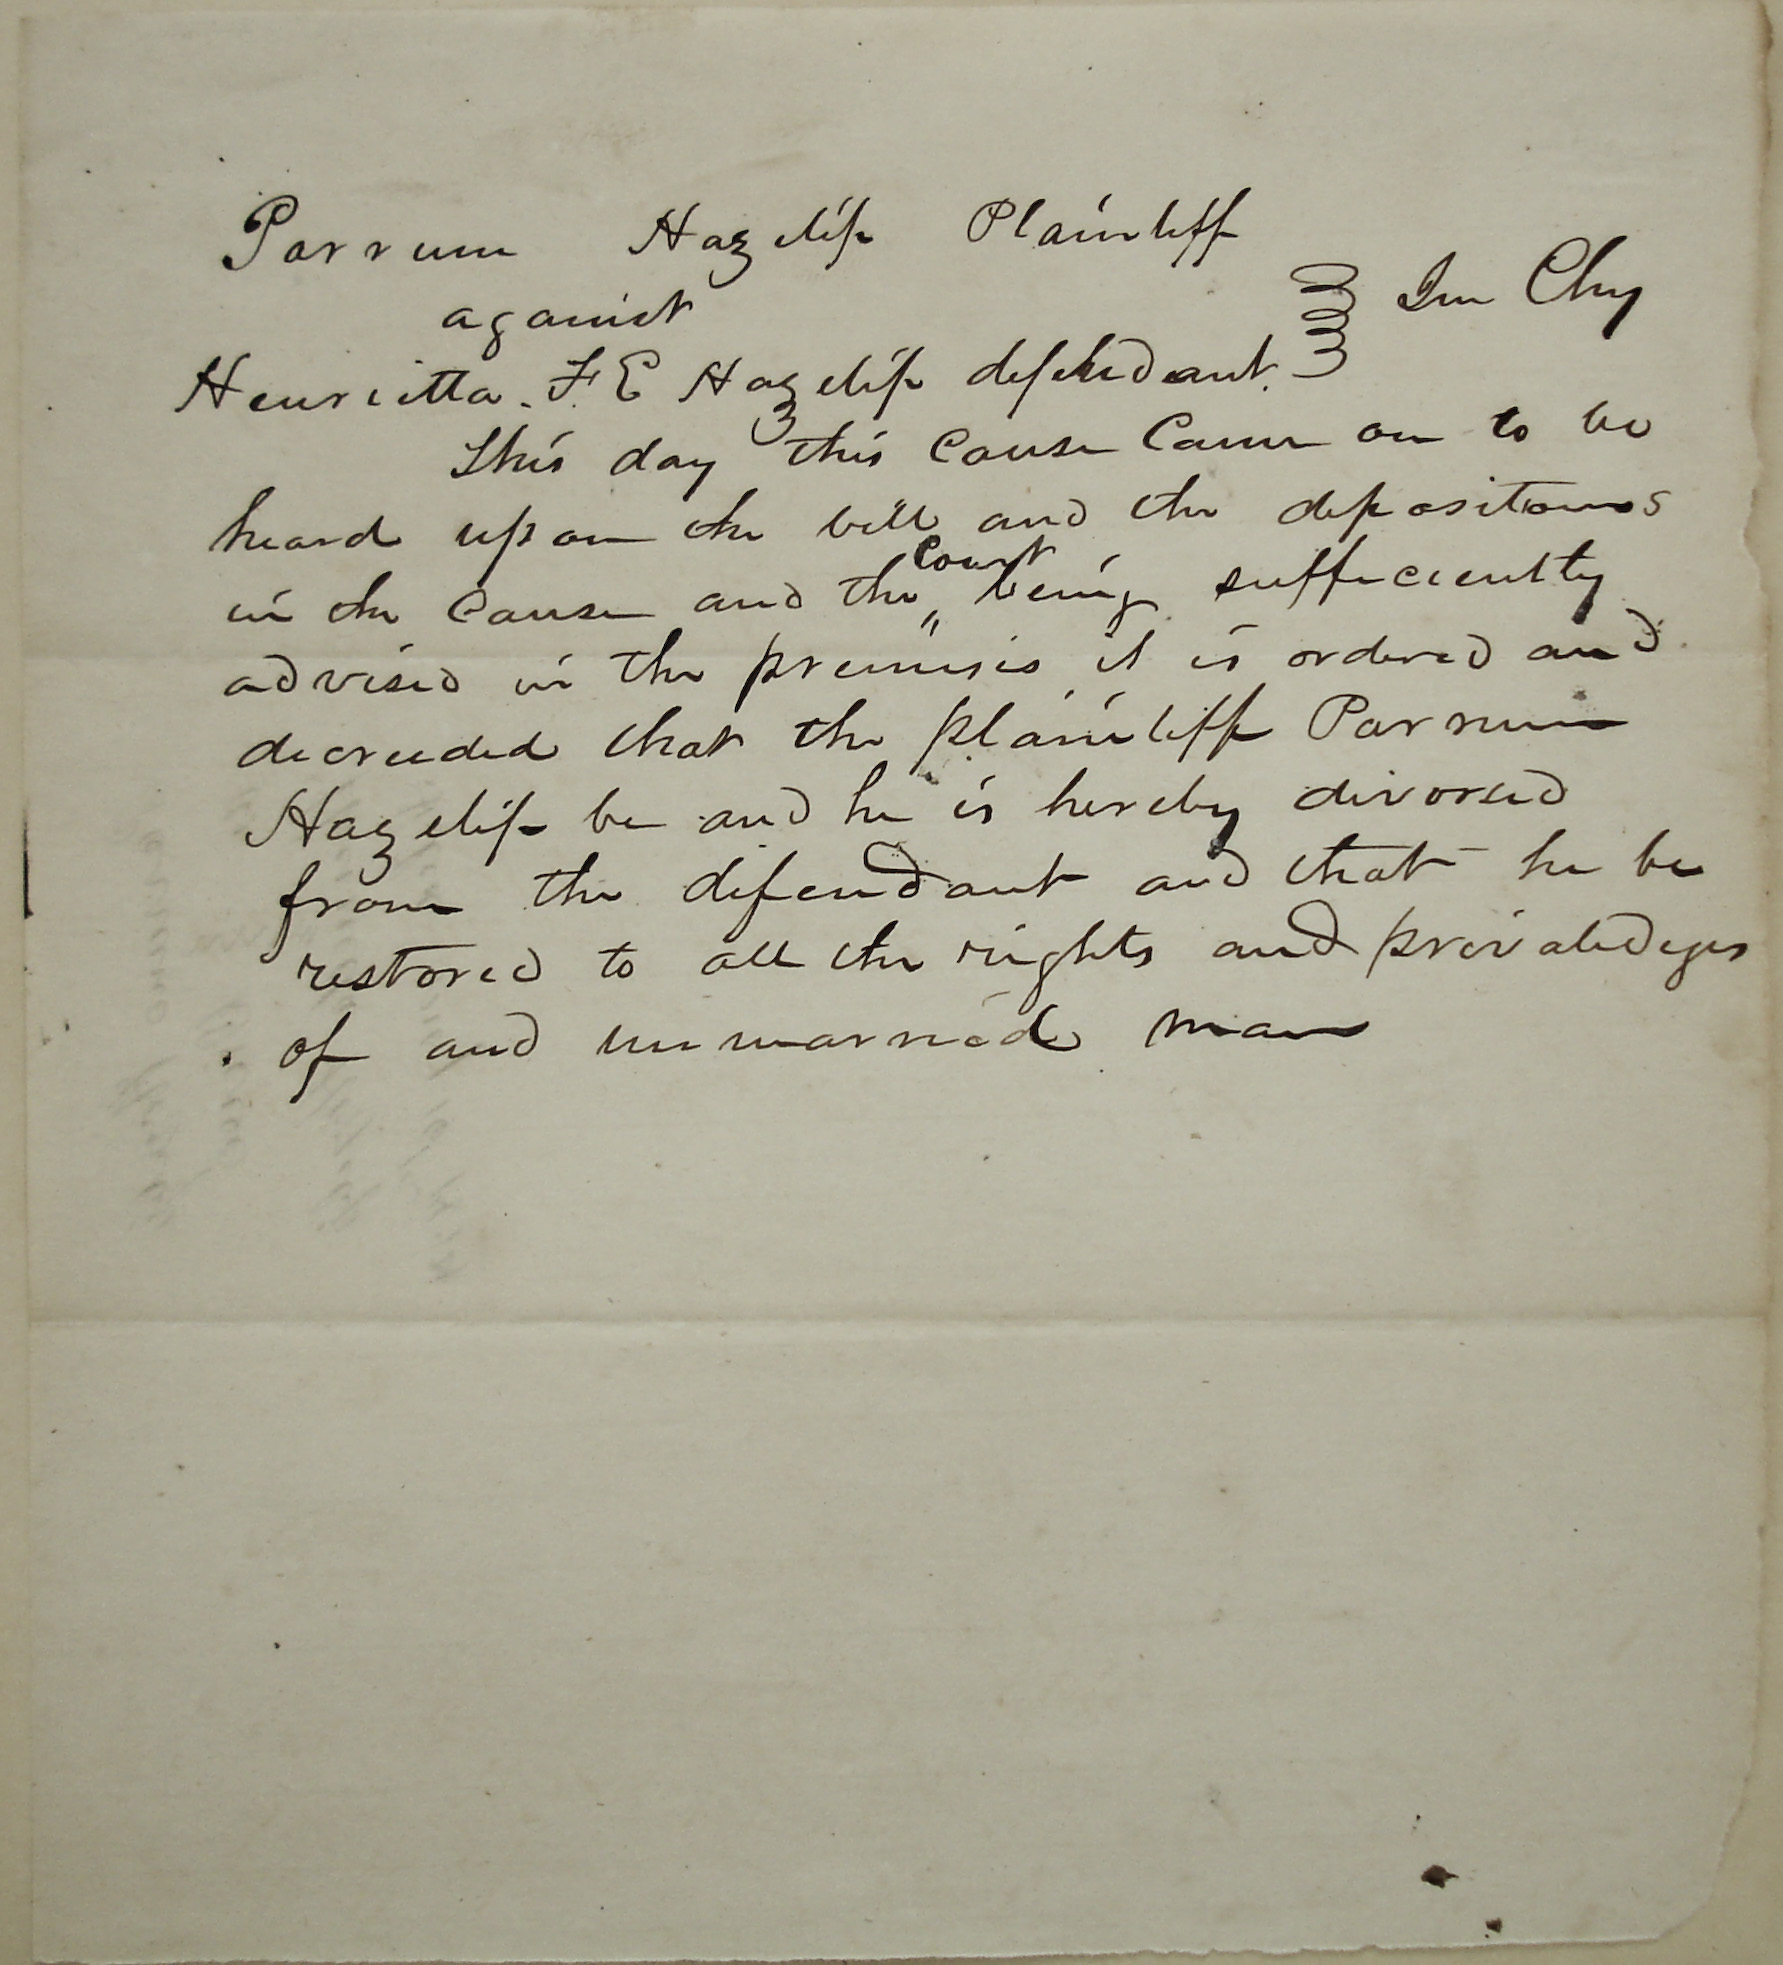 Parrum Hazelip Plaintiff
against
In Chy
Henrietta. F. E Hazelip defendant.
This day this Cause Came on to be
heard upon the bill and the depositions
in the Cause and the Court being sufficiently
advised in the premisis it is ordered and
decreeded that the plaintiff Parrum
Hazelip be and he is hereby divorsed
from the defendant and that he be
restored to all the rights and privaledges
of and unmarried man